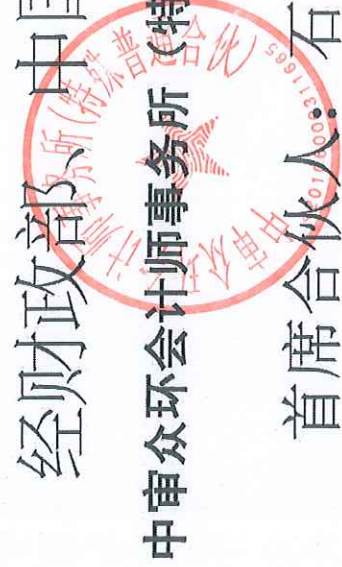 经财政部、中国
中审众环会计师事务所（特
首席合伙人：石
中审众环会计师事务所(特殊普通合伙)